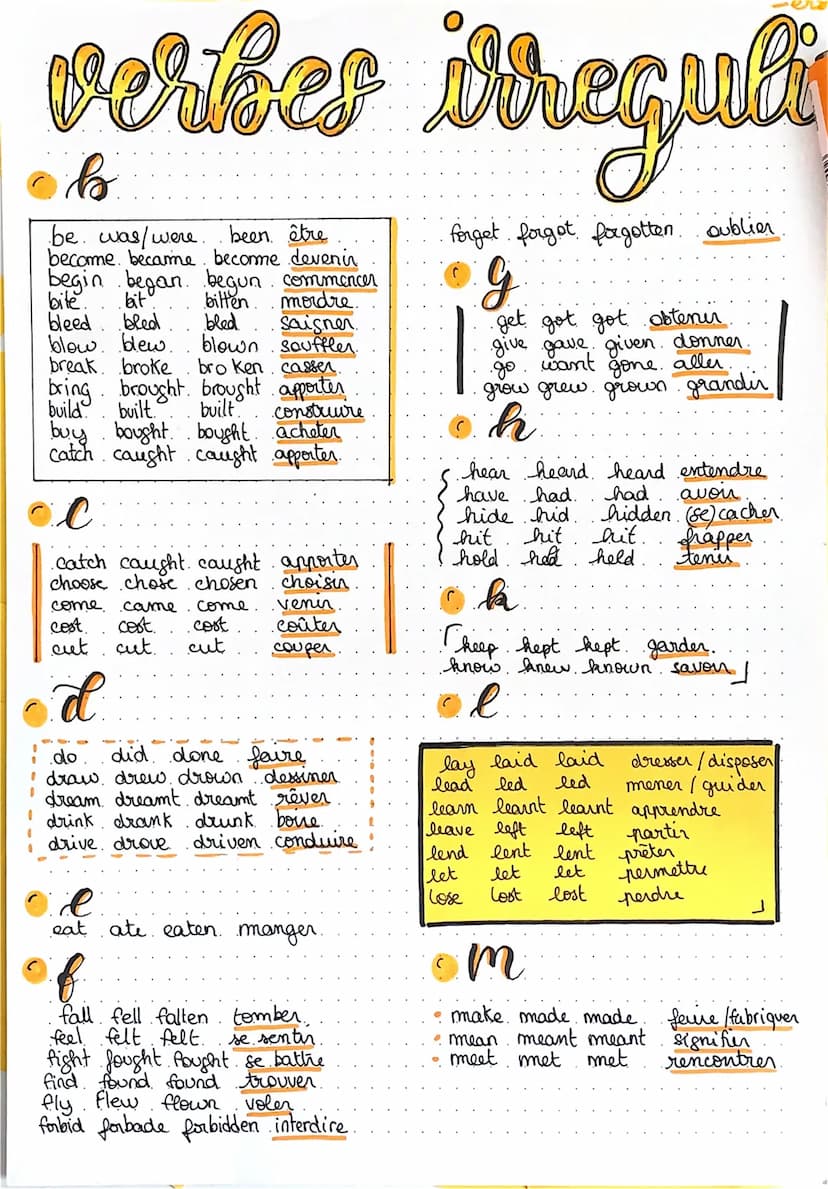 verbes irreguli
b
be was/were been être
become became become devenir
begin began begun commencer
bite bit bitten mordre
bleed bled bled saigner
blow blew blown souffler
break broke broken casser
bring brought brought apporter
build built built construire
buy bought bought acheter
catch caught caught apporter
c
catch caught caught apporter
choose chose chosen choisir
come came come venir
cost cost cost coûter
cut cut cut couper
d
do did done faire
draw drew drown dessiner
dream dreamt dreamt rêver
drink drank drunk boire
drive drove driven conduire
e
eat ate eaten manger
f
fall fell fallen tomber
feel felt felt se sentir
fight fought fought se battre
find found found trouver
fly flew flown voler
forbid forbade forbidden interdire
forget forgot forgotten oublier
g
get got got obtenir
give gave given donner
go want gone aller
grow grew grown grandir
h
hear heard heard entendre
have had had avoir
hide hid hidden (se) cacher
hit hit hit frapper
hold held held tenir
k
keep kept kept garder
know knew known savoir
l
lay laid laid dresser/disposer
lead led led mener/guider
learn learnt learnt apprendre
leave left left partir
lend lent lent prêter
let let let permettre
lose lost lost perdre
m
make made made faire/fabriquer
mean meant meant signifier
meet met met rencontrer